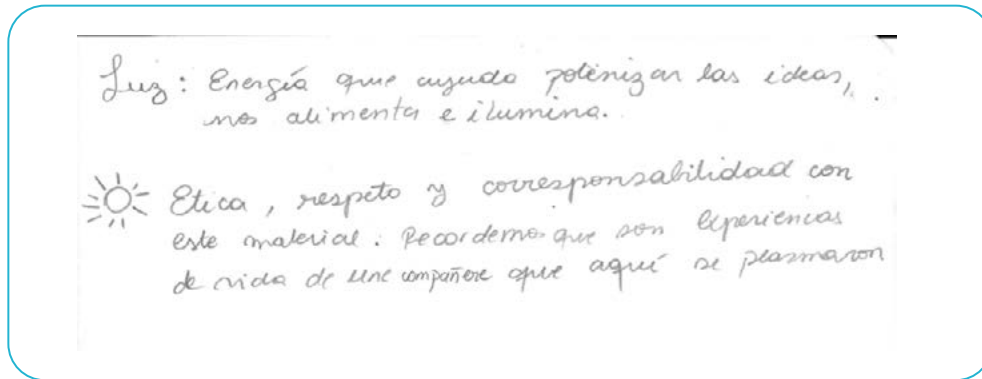 Luz: Energía que ayuda polenizar las ideas,
nos alimenta e ilumina.
Etica, respeto y corresponsabilidad con
este material. Recordemos que son experiencias
de vida de une compañere que aquí se plasmaron